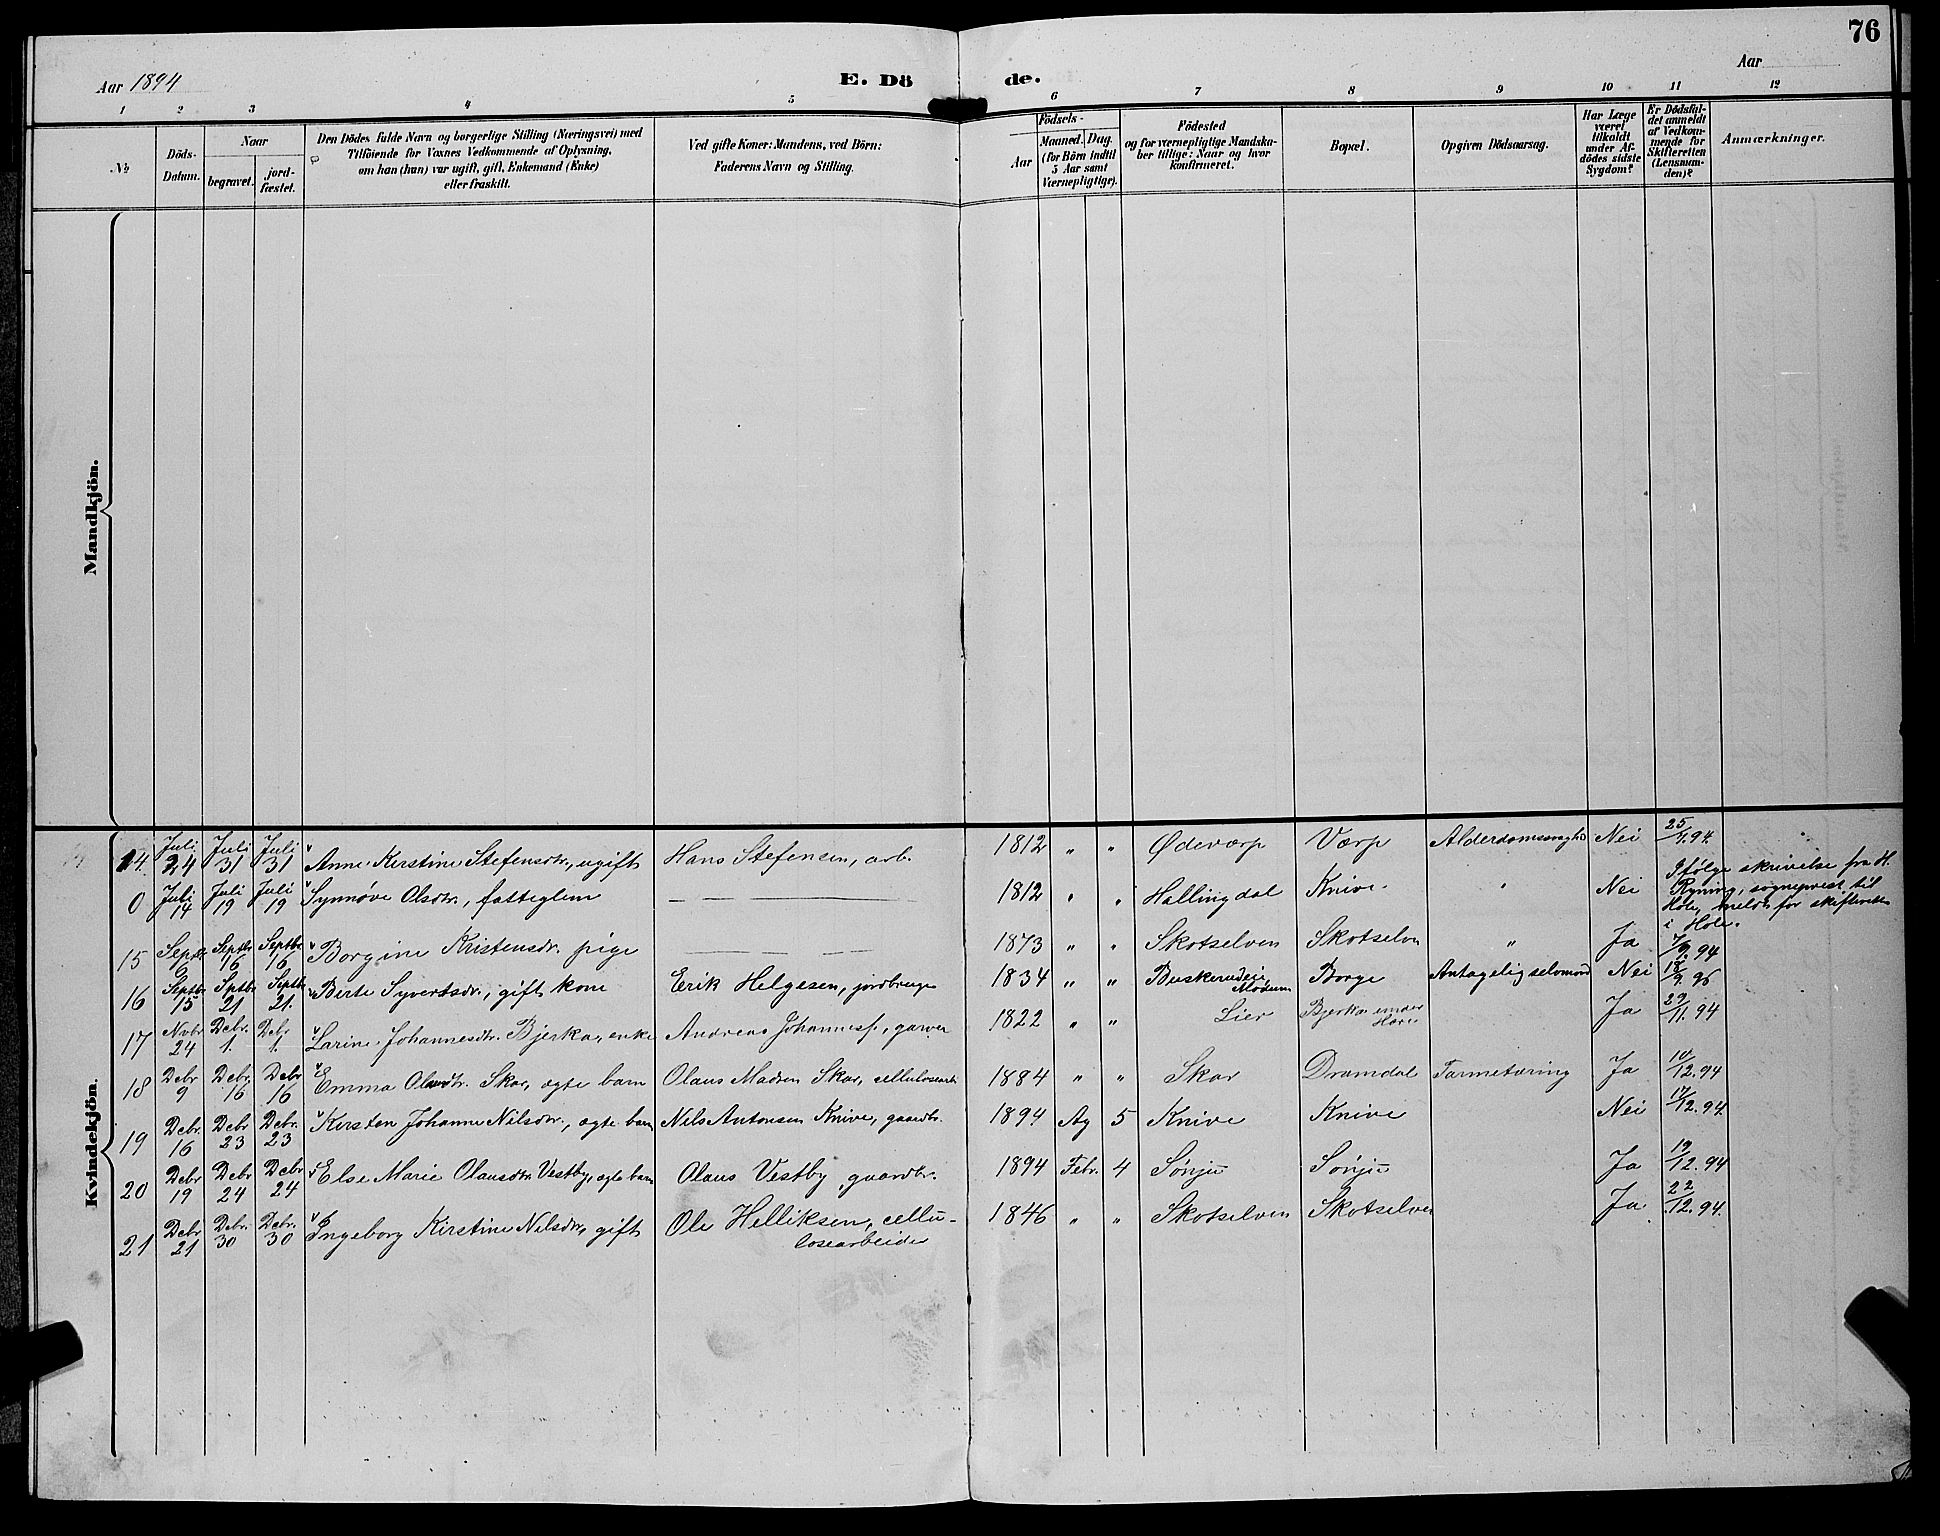 76
Aar 1894
E. Dö de.
Aar
1 2 3 4 5 6 7 8 9 10 11 12
№
Döds-Datum.
Naar
begravet.
jord-fæstet.
Den Dödes fulde Navn og borgerlige Stilling (Næringsvei) med
Tilföiende for Voxnes Vedkommende af Oplysning,
om han (hun) var ugift, gift, Enkemand (Enke)
eller fraskilt.
Ved gifte Koner: Mandens, ved Börn:
Faderens Navn og Stilling.
Födsels-
Aar
Maaned. Dag.
(for Börn indtil
5 Aar samt
Værnepligtige).
Födested
og for værnepligtige Mandska-
ber tillige: Naar og hvor
konfirmeret.
Bopæl.
Opgiven Dödsaarsag.
Har Læge
været
tilkaldt
under Af-
dödes sidste
Sygdom?
Er Dödsfal-
det anmeldt
af Vedkom-
mende for
Skifteretten
(Lensman-
den)?
Anmærkninger.
Mandkjön.
Kvindekjön.
14. Juli 24 Juli 31 Juli 31 Anne Kirstine Stefensdtr., ugift Hans Stefensen, arb. 1812 " " Ødeværp Værp Alderdomssvaghd Nei 25/7.94.
0 Juli 14 Juli 19 Juli 19 Synnøve Olsdtr., fatteglem — — — 1812 " " Hallingdal Knive " Nei Ifølge skrivelse fra H.
Ryning, sogneprest til
Hole, meldt for skifteretten
i Hole.
15 Septbr 6 Septbr 16 Septbr 16 Borgine Kristensdr. pige — — — 1873 " " Skotselven Skotselvn " Ja 7/9.94
16 Septbr 15 Sptbr 21 Septbr 21. Birte Syvertsdr., gift kone Erik Helgesen, jordbruger 1834 " " Buskerudeie Modum Borge Antagelig selvmord Nei 18/9.96
17 Nvbr 24 Debr. 1. Debr 1. Larine Johannesdtr. Bjerka, enke Andreas Johannesf., garver 1822 " " Lier Bjerka under Horne Ja 29/11.94
18 Debr 9 Debr 16 Debr 16 Emma Olausdtr. Skar, ægte barn Olaus Madsen Skar, cellulosearb 1884 " " Skar Dramdal Tarmetæring Ja 10/12.94
19 Debr. 16 Debr. 23 Debr. 23 Kirsten Johanne Nilsdtr., ægte barn Nils Antonsen Knive, gaardbr. 1894 Ag 5 Knive Knive Nei 17/12.94.
20 Debr 19 Debr 24 Debr 24 Else Marie Olausdtr. Vestby, ægte barn Olaus Vestby, gaardbr. 1894 Febr. 4 Sønju Sønju Ja 19/12.94
21 Debr 21 Debr. 30 Debr. 30 Ingeborg Kirstine Nilsdtr., gift Ole Helliksen, cellu-
losearbeider 1846 " " Skotselven Skotselven Ja 22/12.94.